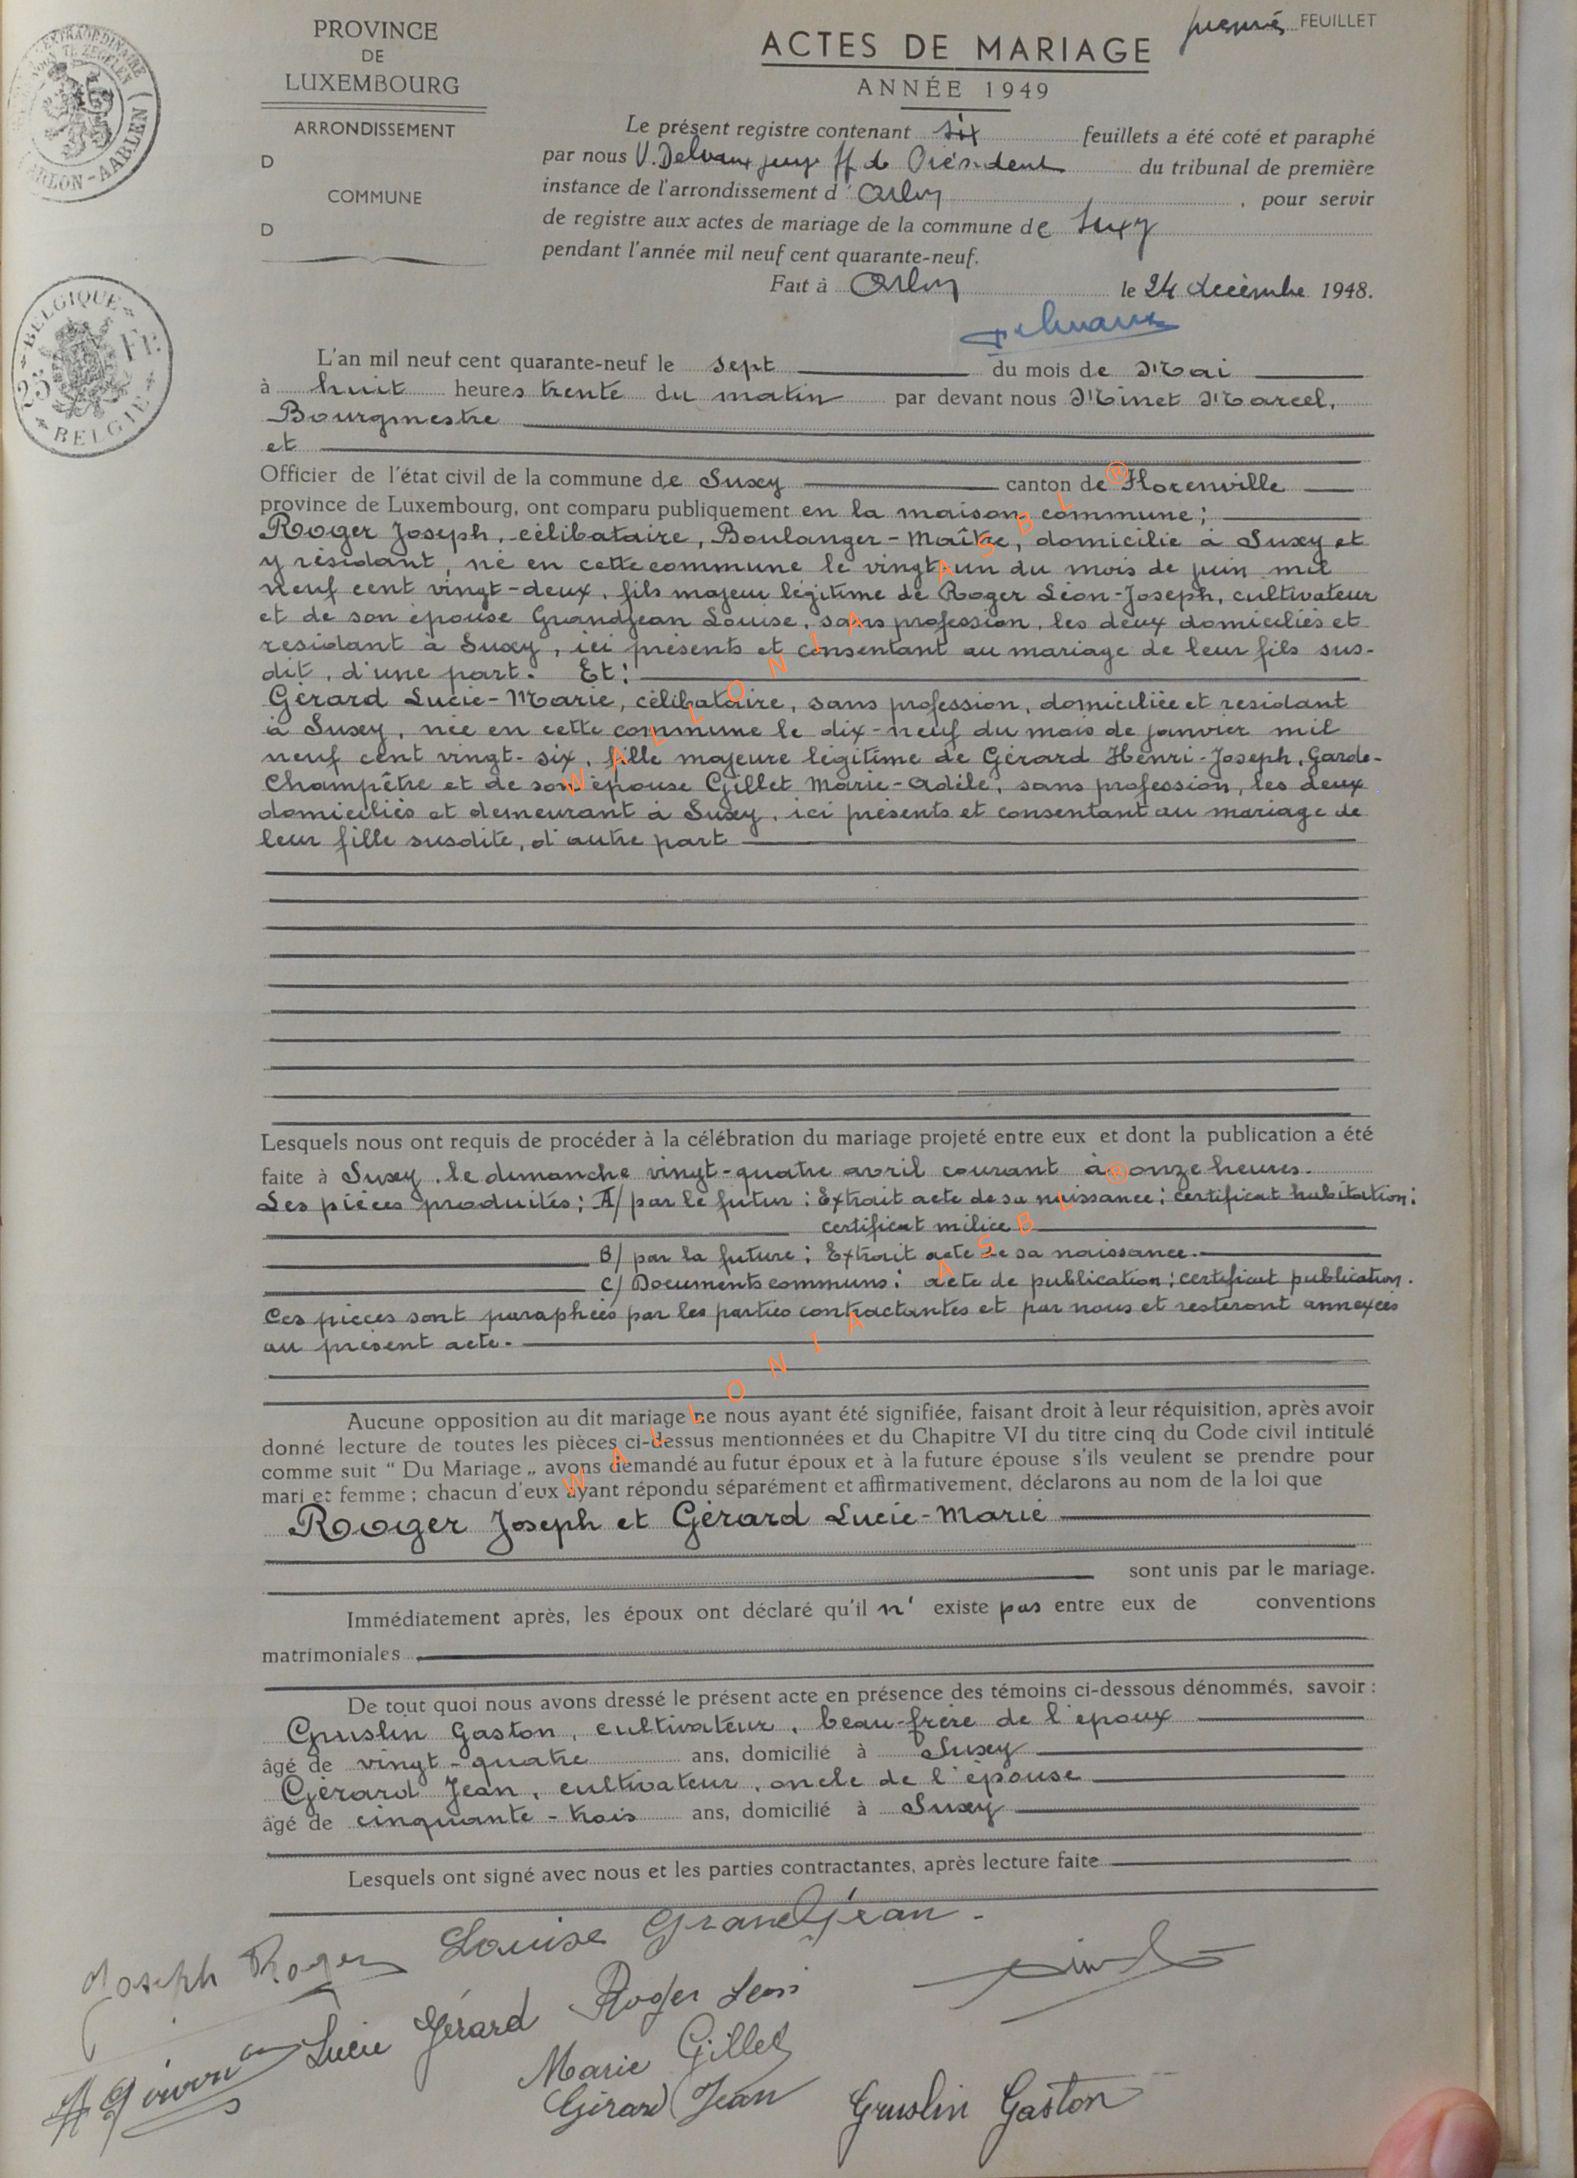 PROVINCE
DE
LUXEMBOURG
ARRONDISSEMENT
D
COMMUNE
D
BELGIQUE
25 FR
BELGIE
premier FEUILLET
ACTES DE MARIAGE
ANNÉE 1949
Le présent registre contenant six feuillets a été coté et paraphé
par nous V. Delvaux juge ff de Président du tribunal de première
instance de l'arrondissement d'Arlon, pour servir
de registre aux actes de mariage de la commune de Suxy
pendant l'année mil neuf cent quarante-neuf.
Fait à Arlon le 24 décembre 1948.
Delvaux
L'an mil neuf cent quarante-neuf le sept du mois de Mai
à huit heures trente du matin par devant nous Minet Marcel,
Bourgmestre
et
Officier de l'état civil de la commune de Suxy canton de Florenville
province de Luxembourg, ont comparu publiquement en la maison commune;
Roger Joseph, célibataire, Boulanger-Maître, domicilié à Suxy et
y résidant, né en cette commune le vingt un du mois de juin mil
neuf cent vingt-deux, fils majeur légitime de Roger Léon-Joseph, cultivateur
et de son épouse Grandjean Louise, sans profession, les deux domiciliés et
résidant à Suxy, ici présents et consentant au mariage de leur fils sus-
dit, d'une part. Et:
Gérard Lucie-Marie, célibataire, sans profession, domiciliée et résidant
à Suxy, née en cette commune le dix-neuf du mois de janvier mil
neuf cent vingt-six, fille majeure légitime de Gérard Henri-Joseph, Garde-
Champêtre et de son épouse Gillet Marie-Adèle, sans profession, les deux
domiciliés et demeurant à Suxy, ici présents et consentant au mariage de
leur fille susdite, d'autre part
WALLONIA ASBL ®
Lesquels nous ont requis de procéder à la célébration du mariage projeté entre eux et dont la publication a été
faite à Suxy, le dimanche vingt-quatre avril courant à onze heures.
Les pièces produites; A/ par le futur: Extrait acte de sa naissance; certificat habitation;
certificat milice
B/ par la future: Extrait acte de sa naissance.
C/ Documents communs: acte de publication; certificat publication.
Ces pièces sont paraphées par les parties contractantes et par nous et resteront annexées
au présent acte.
WALLONIA ASBL ®
Aucune opposition au dit mariage ne nous ayant été signifiée, faisant droit à leur réquisition, après avoir
donné lecture de toutes les pièces ci-dessus mentionnées et du Chapitre VI du titre cinq du Code civil intitulé
comme suit “ Du Mariage „ avons demandé au futur époux et à la future épouse s'ils veulent se prendre pour
mari et femme; chacun d'eux ayant répondu séparément et affirmativement, déclarons au nom de la loi que
Roger Joseph et Gérard Lucie-Marie
sont unis par le mariage.
Immédiatement après, les époux ont déclaré qu'il n' existe pas entre eux de conventions
matrimoniales
De tout quoi nous avons dressé le présent acte en présence des témoins ci-dessous dénommés, savoir:
Gruslin Gaston, cultivateur, beau-frère de l'époux
âgé de vingt-quatre ans, domicilié à Suxy
Gérard Jean, cultivateur, oncle de l'épouse
âgé de cinquante-trois ans, domicilié à Suxy
Lesquels ont signé avec nous et les parties contractantes, après lecture faite
Joseph Roger Louise Grandjean
Lucie Gérard Roger Léon
Marie Gillet
Gérard Jean Gruslin Gaston